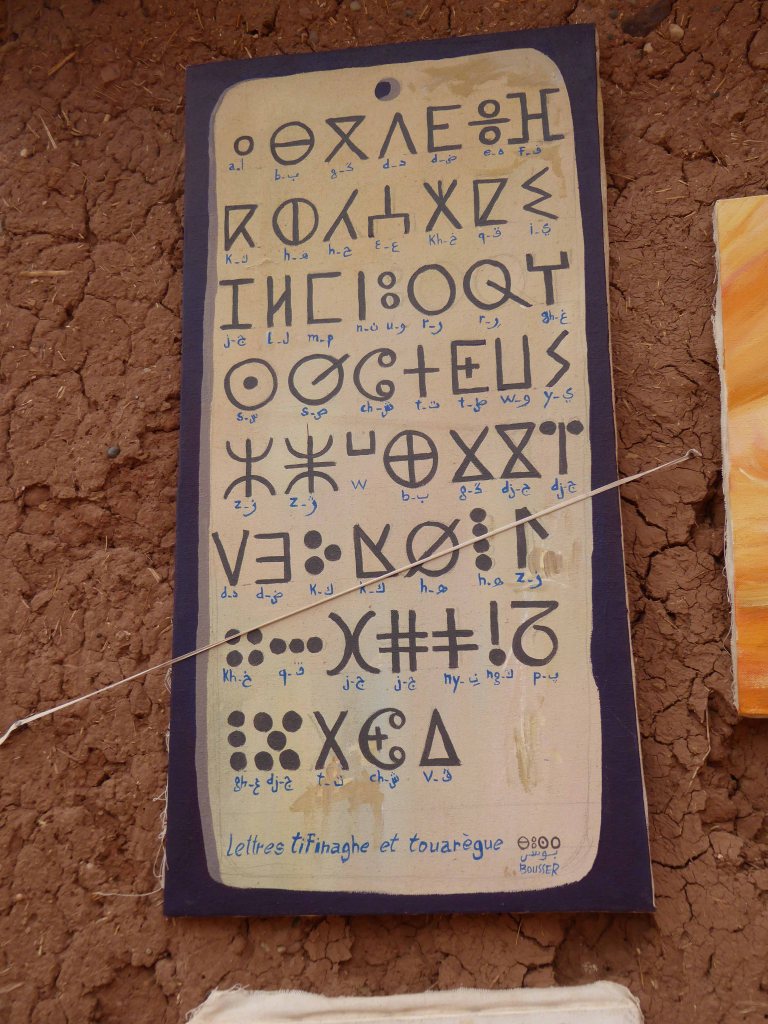 ⴰ ⴱ ⴳ ⴷ ⴹ ⴻ ⴼ
a_ا b_ب g_گ d_د d_ض e_ه f_ف
ⴽ ⵀ ⵃ ⵄ ⵅ ⵇ ⵉ
K_ك h_ه h_ح ε_ع Kh_خ q_ق i_ي
ⵊ ⵍ ⵎ ⵏ ⵓ ⵔ ⵕ ⵖ
j_ج l_ل m_م n_ن u_و r_ر r_ر gh_غ
ⵙ ⵚ ⵛ ⵜ ⵟ ⵡ ⵢ
s_س s_ص ch_ش t_ت t_ط w_و y_ي
ⵣ ⵥ ⵯ ⴲ ⴴ ⴵ ⴶ
z_ز z_ژ w b_ب g_گ dj_ج dj_ج
ⴸ ⴺ ⴾ ⴿ ⵁ ⵂ ⵤ
d_د d_ض K_ك K_ك h_ه h_ه z_ز
ⵆ ⵈ ⵋ ⵌ ⵐ ⵑ ⵒ
Kh_خ q_ق j_ج j_ج ny_ن ng_ك p_پ
ⵗ ⵘ ⵝ ⵞ ⵠ
gh_غ dj_ج t_ت ch_ش v_ڤ
Lettres tiFinaghe et touarègue
ⴱⵓⵙⵔ
بوسر
BOUSSER